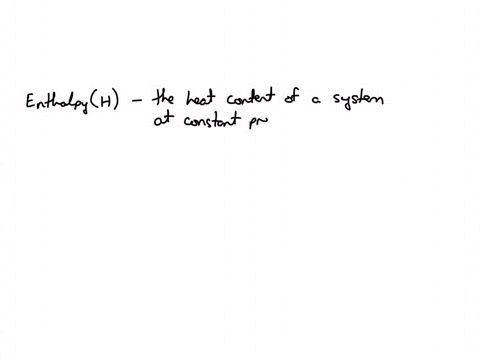 Enthalpy(H) - the heat content of a system
at constant pr